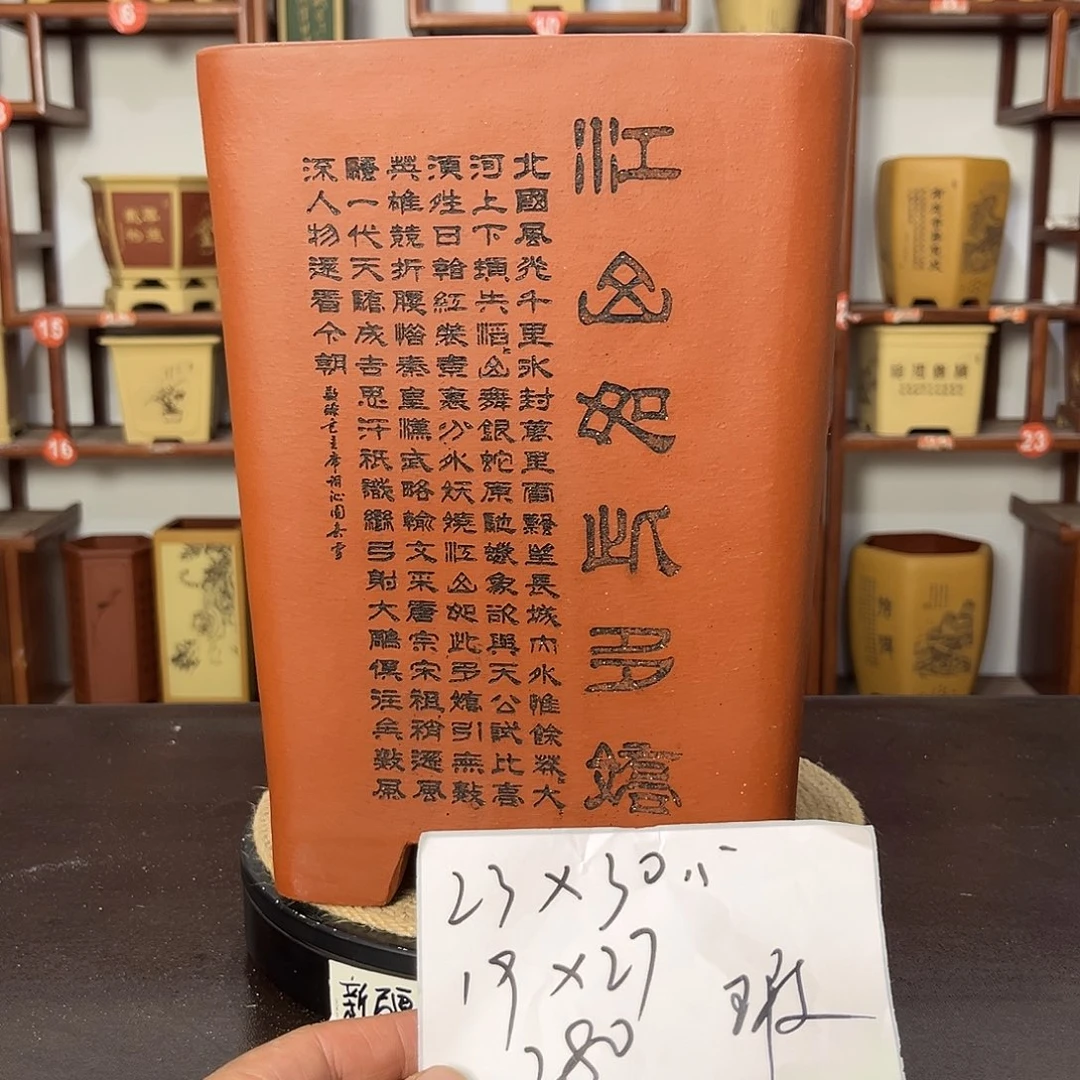 江山如此多嬌
北國風光千里冰封萬里雪飄望長城內外惟餘莽々大
河上下頓失滔々山舞銀蛇原馳蠟象欲與天公試比高
須晴日看紅裝素裹分外妖嬈江山如此多嬌引無數
英雄競折腰惜秦皇漢武略輸文采唐宗宋祖稍遜風
騷一代天驕成吉思汗祇識彎弓射大雕俱往矣數風
流人物還看今朝
敬錄毛主席詞沁園春雪
23×30.5
19×27
280
瑕
新疆
6
10
15
16
23